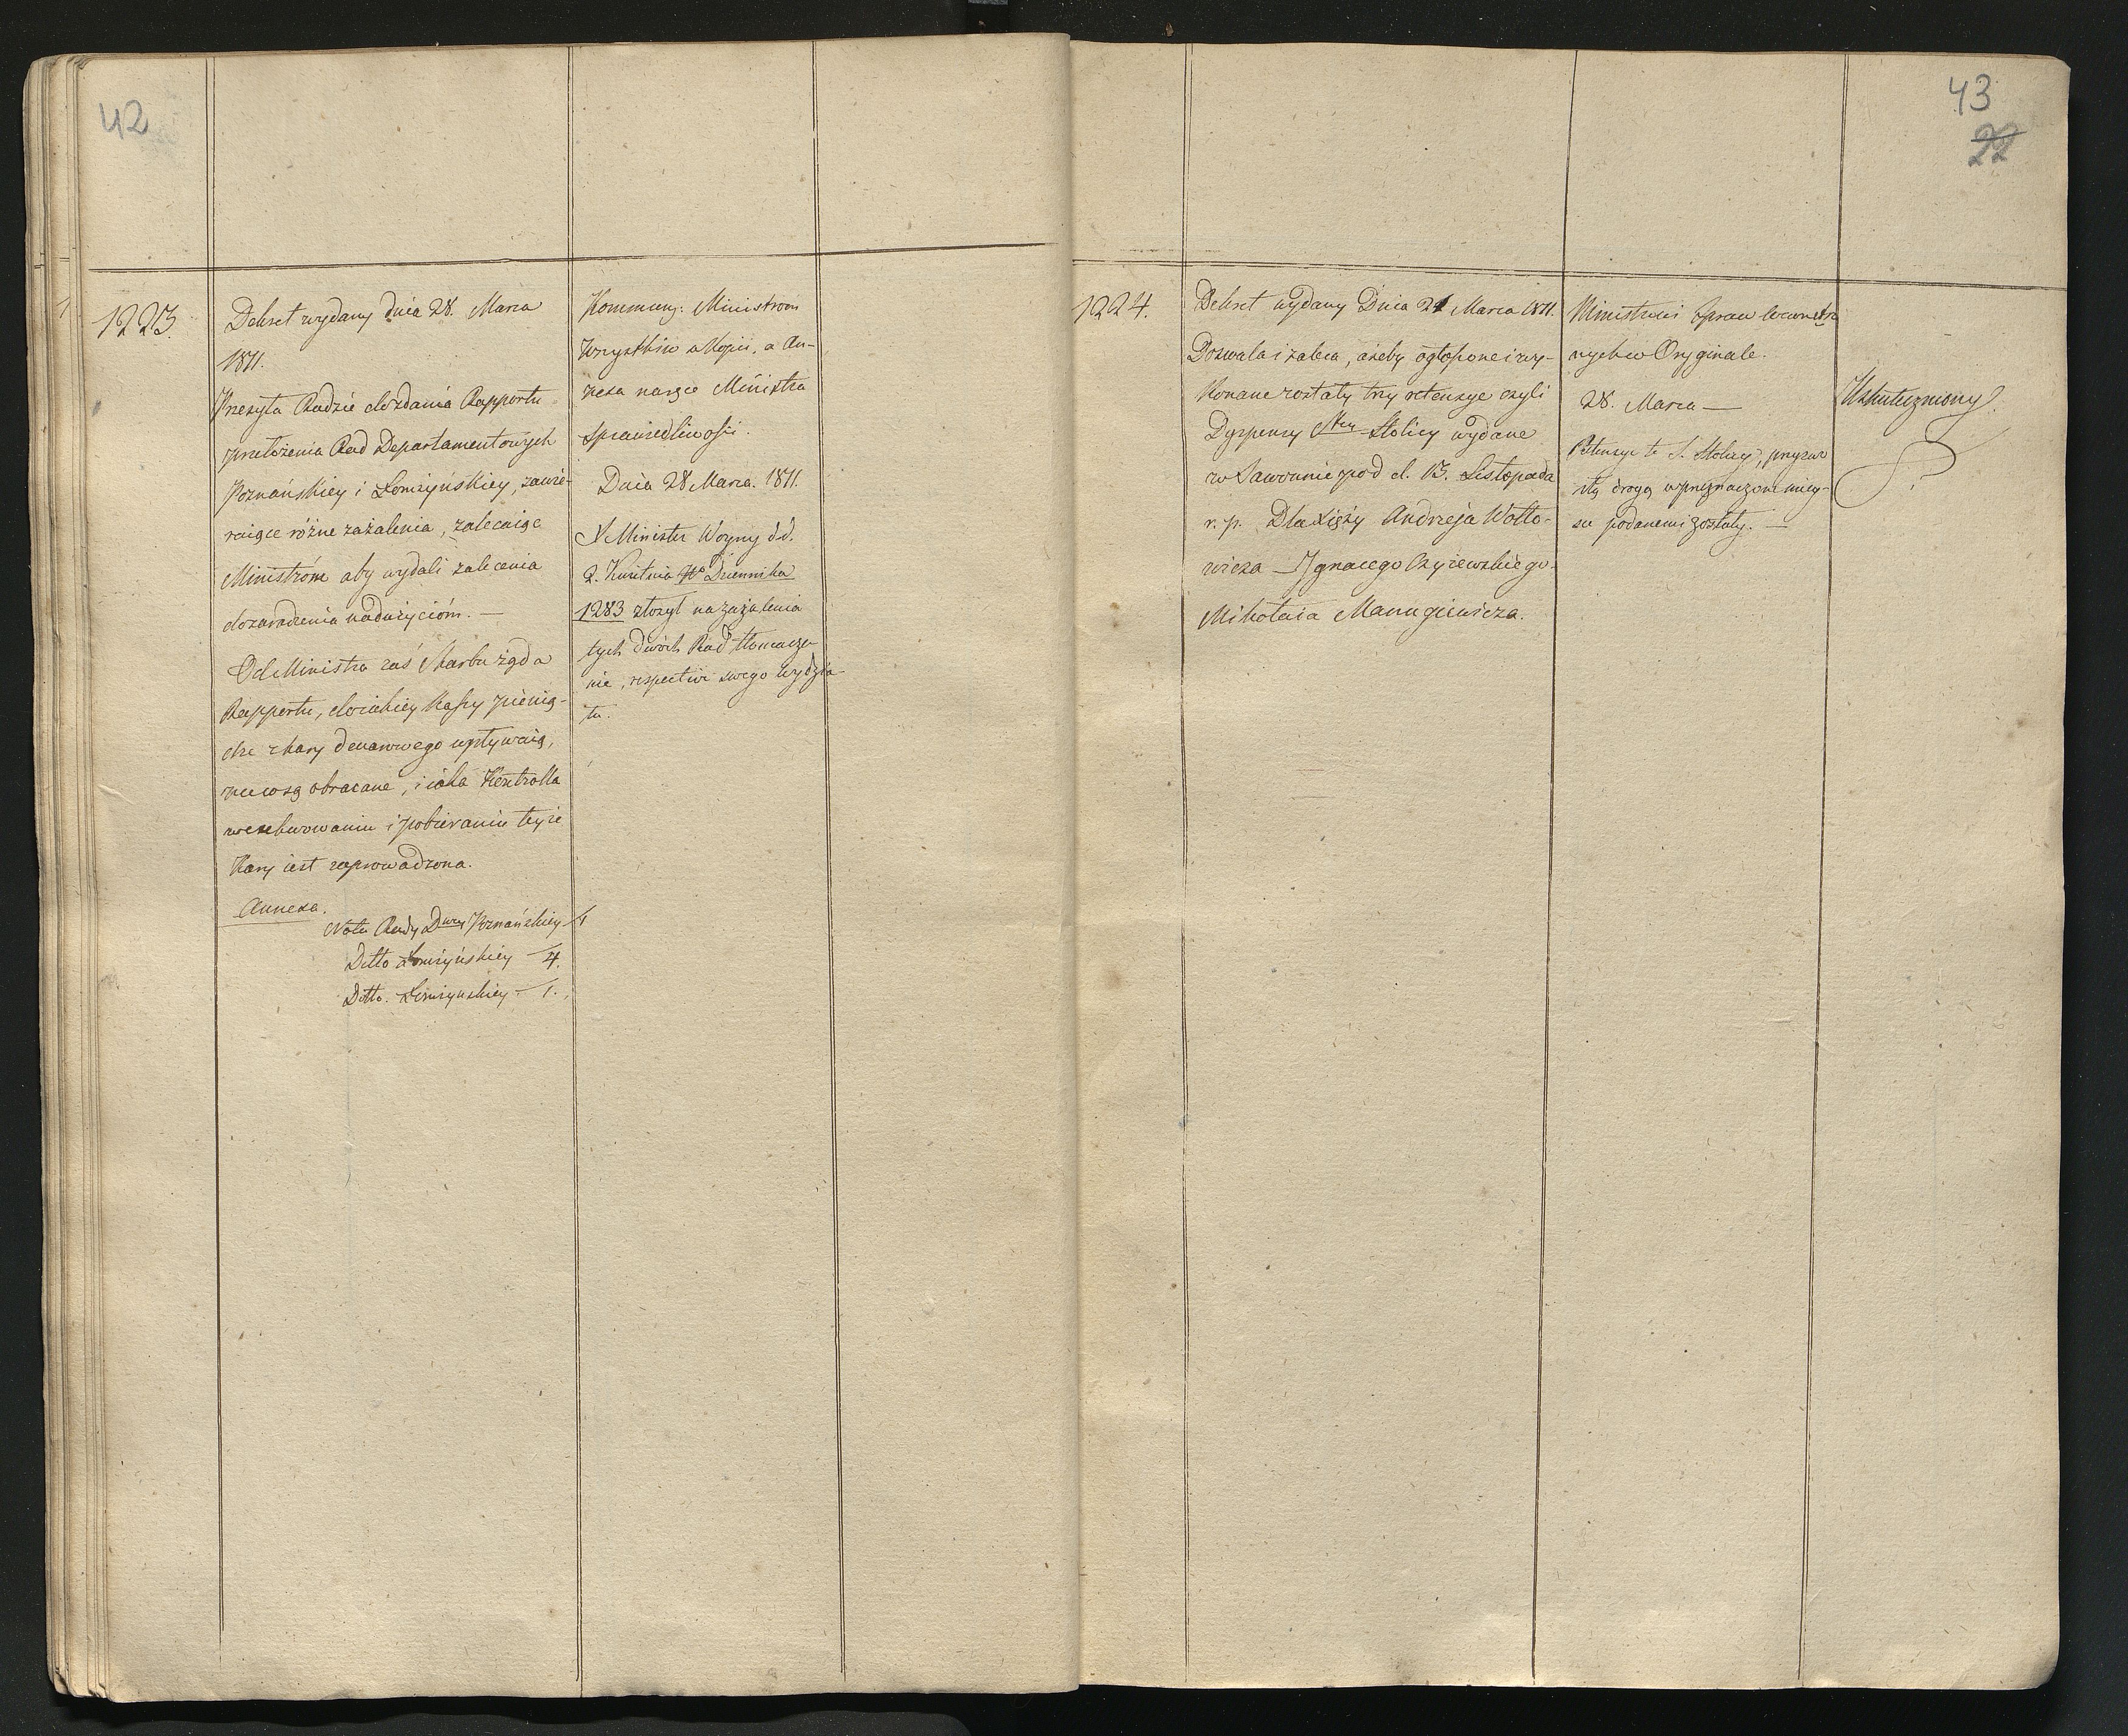 42
1223.
Dekret wydany dnia 28. Marca
1811.
Przesyła Radzie do zdania Rapportu
przełożenia Rad Departamentowych
Poznańskiey i Łomżyńskiey, zawie-
raiące różne zażalenia, zalecaiąc
Ministróm aby wydali zalecenia
do zaradzenia nadużycióm. —
Od Ministra zaś Skarbu żąda
Rapportu, do iakiey Kassy pienią-
dze z kary wpływaią,
na co są obracane, i iaka Kontrolla
w i pobieraniu teyże
Kary iest zaprowadzona.
Annexa.
Nota Rady Dwey Poznańskiey — 1
Ditto Łomżyńskiey — 4.
Ditto. Łomżyńskiey — 1.
Kommuny: Ministrom
Wszystkim w Kopii, a An-
nexa na ręce Ministra
Sprawiedliwości.
Dnia 28 Marca. 1811.
Minister Woyny d.d.
2. Kwietnia No Dziennika
1283 złożył na zażalenia
tych dwóch Rad tłomacze-
nie, respective swego Wydzia-
łu.
43
22
1224.
Dekret wydany Dnia 21 Marca 1811.
Dozwala i zaleca, ażeby ogłoszone i wy-
konane zostały trzy retensye czyli
Dyspensy Stey Stolicy wydane
w Sawonnie pod d. 13. Listopada
r. p. Dla Xięży Andrzeja Wołło-
wicza — Ignacego Czyżewskiego.
Mikołaia Manugiewicza.
Ministrowi Spraw Wewnętrz
nych w Oryginale.
28. Marca —
Retensye te S. Stolicy, przyzwo
itą drogą w przeznaczone miey-
sce podanemi zostały. —
Uskuteczniony.